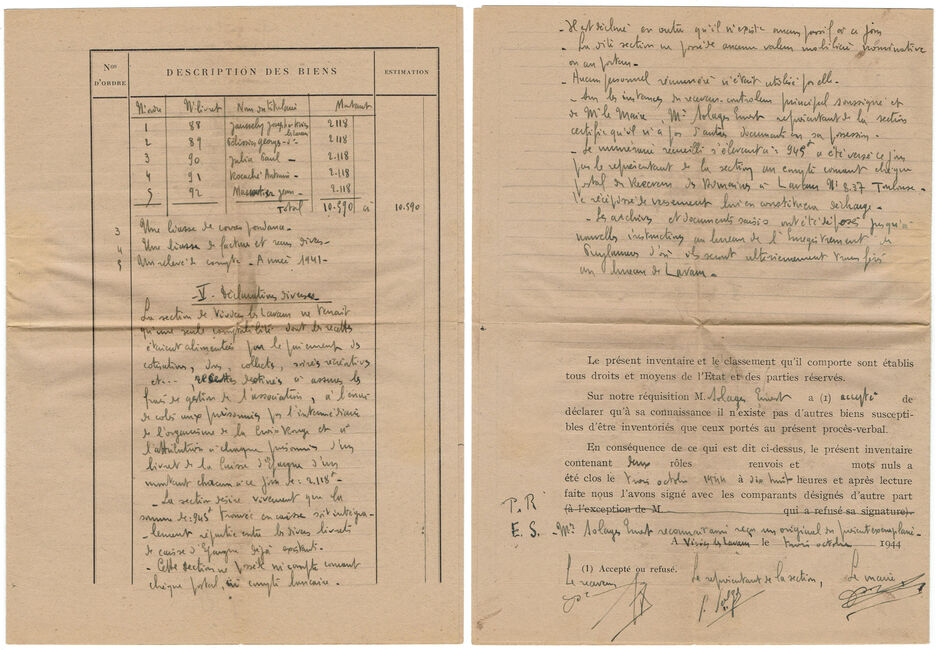 Nos D'ORDRE
DESCRIPTION DES BIENS
ESTIMATION
N° livret Nom du titulaire Montant
1 88 2.118
2 89 2.118
3 90 Julia Paul 2.118
4 91 Antonin 2.118
5 92 Jean 2.118
Total 10.590 10.590
3 Une liasse de correspondance.
4 Une liasse de factures et reçus divers.
5 Un relevé de compte - Année 1941-
V. Déclarations diverses
La section de les Lavaur ne tenait
qu'une seule comptabilité dont les recettes
étaient alimentées par le paiement des
cotisations, dons, collectes, soirées récréatives
etc... destinées à assurer les
frais de gestion de l'association, à l'envoi
de colis aux prisonniers par l'intermédiaire
de l'organisme de la Croix Rouge et à
l'attribution à chaque prisonnier d'un
livret de la Caisse d'Epargne d'un
montant chacun à ce jour de : 2.118f
- La section désire vivement que la
somme de 945f trouvée en caisse soit intégra-
lement répartie entre les divers livrets
de caisse d'Epargne déjà existants.
- Cette section ne possède ni compte courant
chèque postal, ni compte bancaire.
- Il est déclaré en outre qu'il n'existe aucun passif à ce jour
- La dite section ne possède aucune valeur mobilière nominative
ou au porteur -
- Aucun personnel rémunéré n'était utilisé par elle.
- Sur les instances du receveur-contrôleur principal soussigné et
de Mr le Maire, Mr Solages Ernest représentant de la section
certifie qu'il n'a pas d'autres documents en sa possession.
- Le numéraire recueilli s'élevant à : 945f a été versé ce jour
par le représentant de la section au compte courant chèque
postal du Receveur des Domaines à Lavaur N° 8.37 Toulouse.
le récépissé de versement lui en constituera décharge -
- Les archives et documents saisis ont été déposés jusqu'à
nouvelles instructions au bureau de l'Enregistrement de
d'où ils seront ultérieurement transférés
au bureau de Lavaur -
Le présent inventaire et le classement qu'il comporte sont établis
tous droits et moyens de l'Etat et des parties réservés.
Sur notre réquisition M. Solages Ernest a (1) accepté de
déclarer qu'à sa connaissance il n'existe pas d'autres biens suscepti-
bles d'être inventoriés que ceux portés au présent procès-verbal.
En conséquence de ce qui est dit ci-dessus, le présent inventaire
contenant deux rôles renvois et mots nuls a
été clos le trois octobre 1944 à dix huit heures et après lecture
faite nous l'avons signé avec les comparants désignés d'autre part
(à l'exception de M. qui a refusé sa signature).
P. R
E. S. - Mr Solages Ernest reconnait avoir reçu un original du présent exemplaire -
A les Lavaur le trois octobre 1944
(1) Accepté ou refusé.
Le receveur Le représentant de la section, Le maire